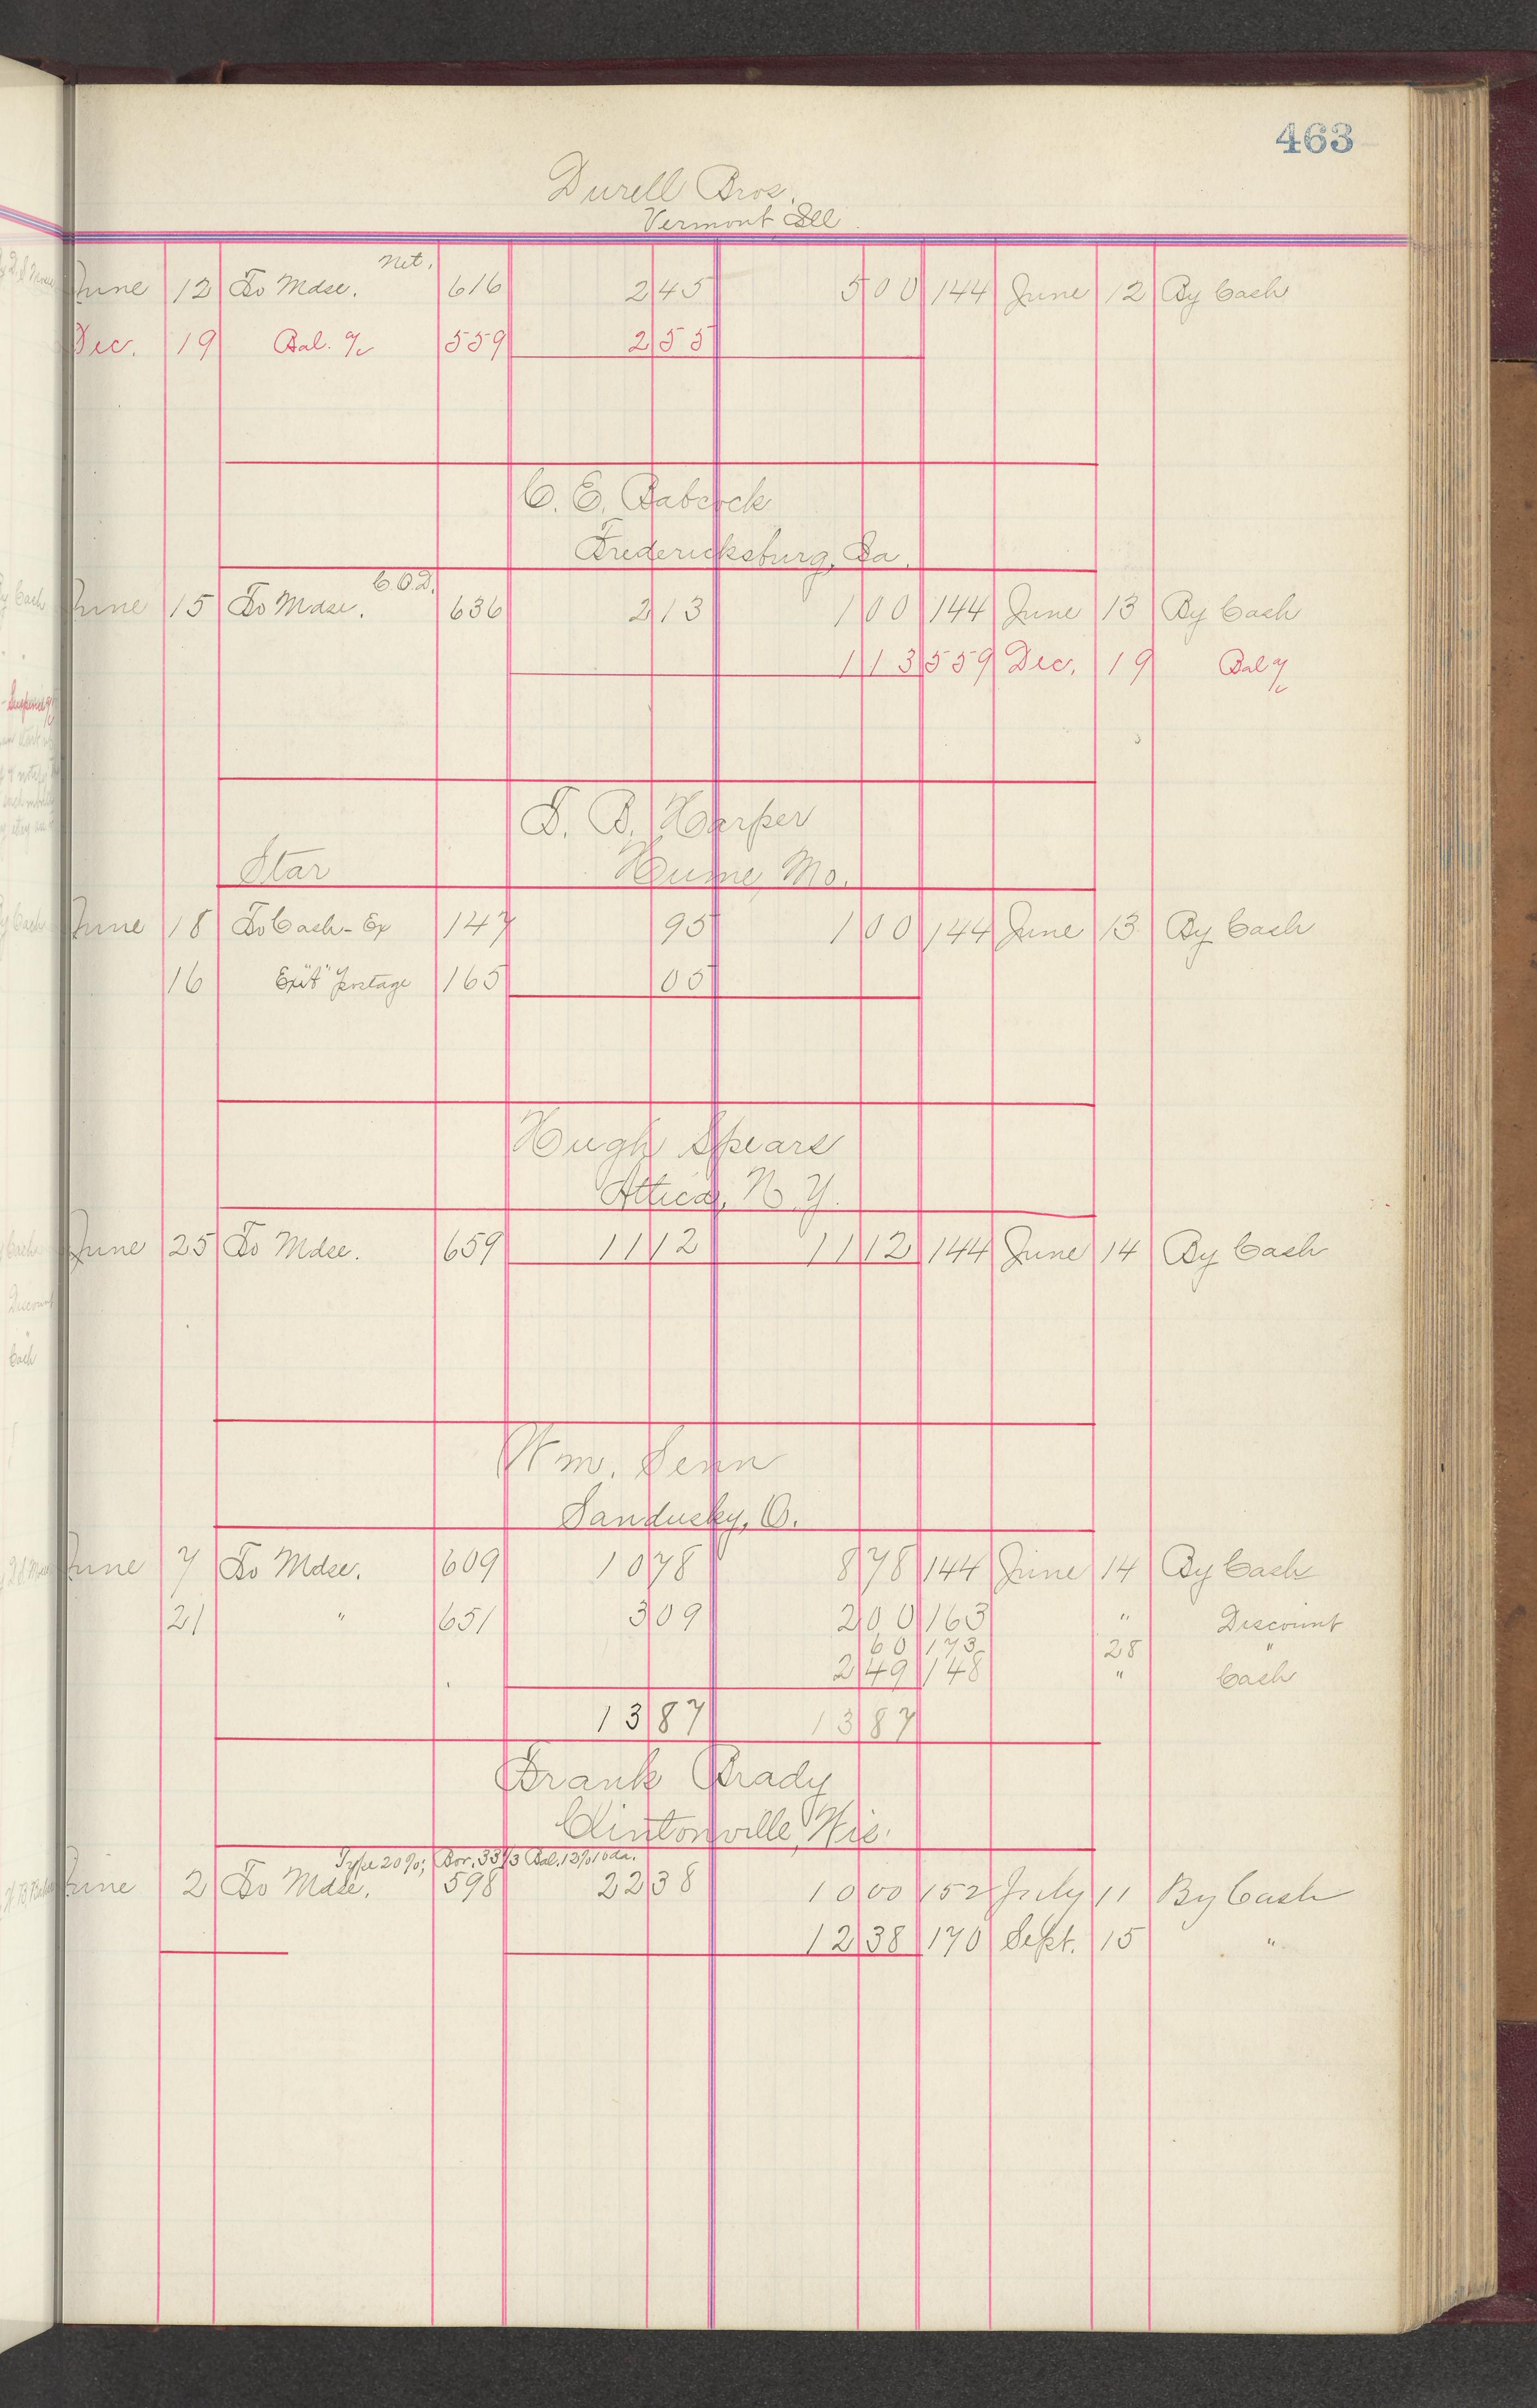 463
Durell Bros.
Vermont Ill.
net.
June 12 To Mdse. 616 2 45 5 00 144 June 12 By Cash
Dec. 19 Bal. a/c 559 2 55
C. E. Babcock
Fredericksburg, Ia.
C.O.D.
June 15 To Mdse. 636 2 13 1 00 144 June 13 By Cash
1 13 559 Dec. 19 Bal a/c
T. B. Harper
Star Hume, Mo.
June 18 To Cash-Ex 147 95 1 00 144 June 13 By Cash
16 postage 165 05
Hugh Spears
Attica, N. Y.
June 25 To Mdse. 659 11 12 11 12 144 June 14 By Cash
Wm. Senn
Sandusky, O.
June 7 To Mdse. 609 10 78 8 78 144 June 14 By Cash
21 " 651 3 09 2 00 163 " Discount
60 173 28 "
2 49 148 " Cash
13 87 13 87
Frank Brady
Clintonville, Wis.
Type 20%; Bor. 33 1/3 Bal. 12% 10 da.
June 2 To Mdse. 598 22 38 10 00 152 July 11 By Cash
12 38 170 Sept. 15 "